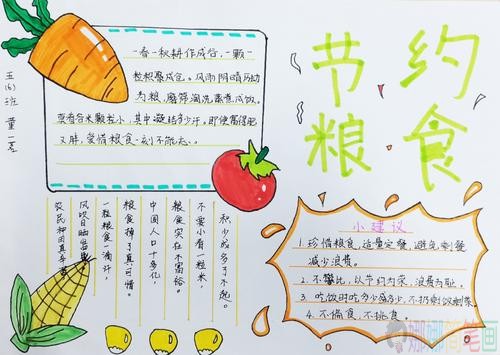 节约
粮食
五(6)班 董一茗
一春一秋耕作成谷,一颗一
粒积聚成仓。风雨阴晴历劫
为粮,磨筛淘洗蒸煮成饭。
莫看谷米颗粒小,其中凝结多少汗。即使富得肥
又胖,爱惜粮食一刻不能忘。
积少成多于不饱。
不要小看一粒米,
粮食实在不富裕。
中国人口十多亿,
粮食掉了真可惜。
一粒粮食一滴汗,
风吹日晒
农民种田真辛苦
小建议
1. 珍惜粮食,适量定餐,避免剩餐
减少浪费。
2. 不攀比,以节约为荣,浪费为耻。
3. 吃饭时吃多少盛多少,不扔剩饭剩菜。
4. 不偏食,不挑食。
娜娜简笔画